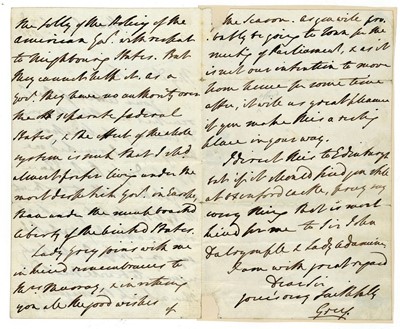 the folly of the Policy of the
American Gov. with respect
to Neighbouring States. But
they cannot help it. as a
Gov. they have no authority over
the separate federal
States, & the effect of the whole
system is such that I shd
almost prefer living under the
most despotick Gov. in Europe,
than under the much boasted
liberty of the United States.
Lady Grey joins with me
in kind remembrances to
Mrs Murray, & in wishing
you all the good wishes
of
the Season. as you will pro-
bably be going to Town for the
meeting of Parliament, & as it
is not our intention to move
from home for some time
after, it will be a great pleasure
if you make this a resting
place in your way.
I direct this to Edinburgh
but if it should find you still
at Oxenford Castle, pray say
every thing that is most
kind for me to Sir John
Dalrymple & Lady Adamina
I am with great regard
Dear Sir
yours very faithfully
Grey